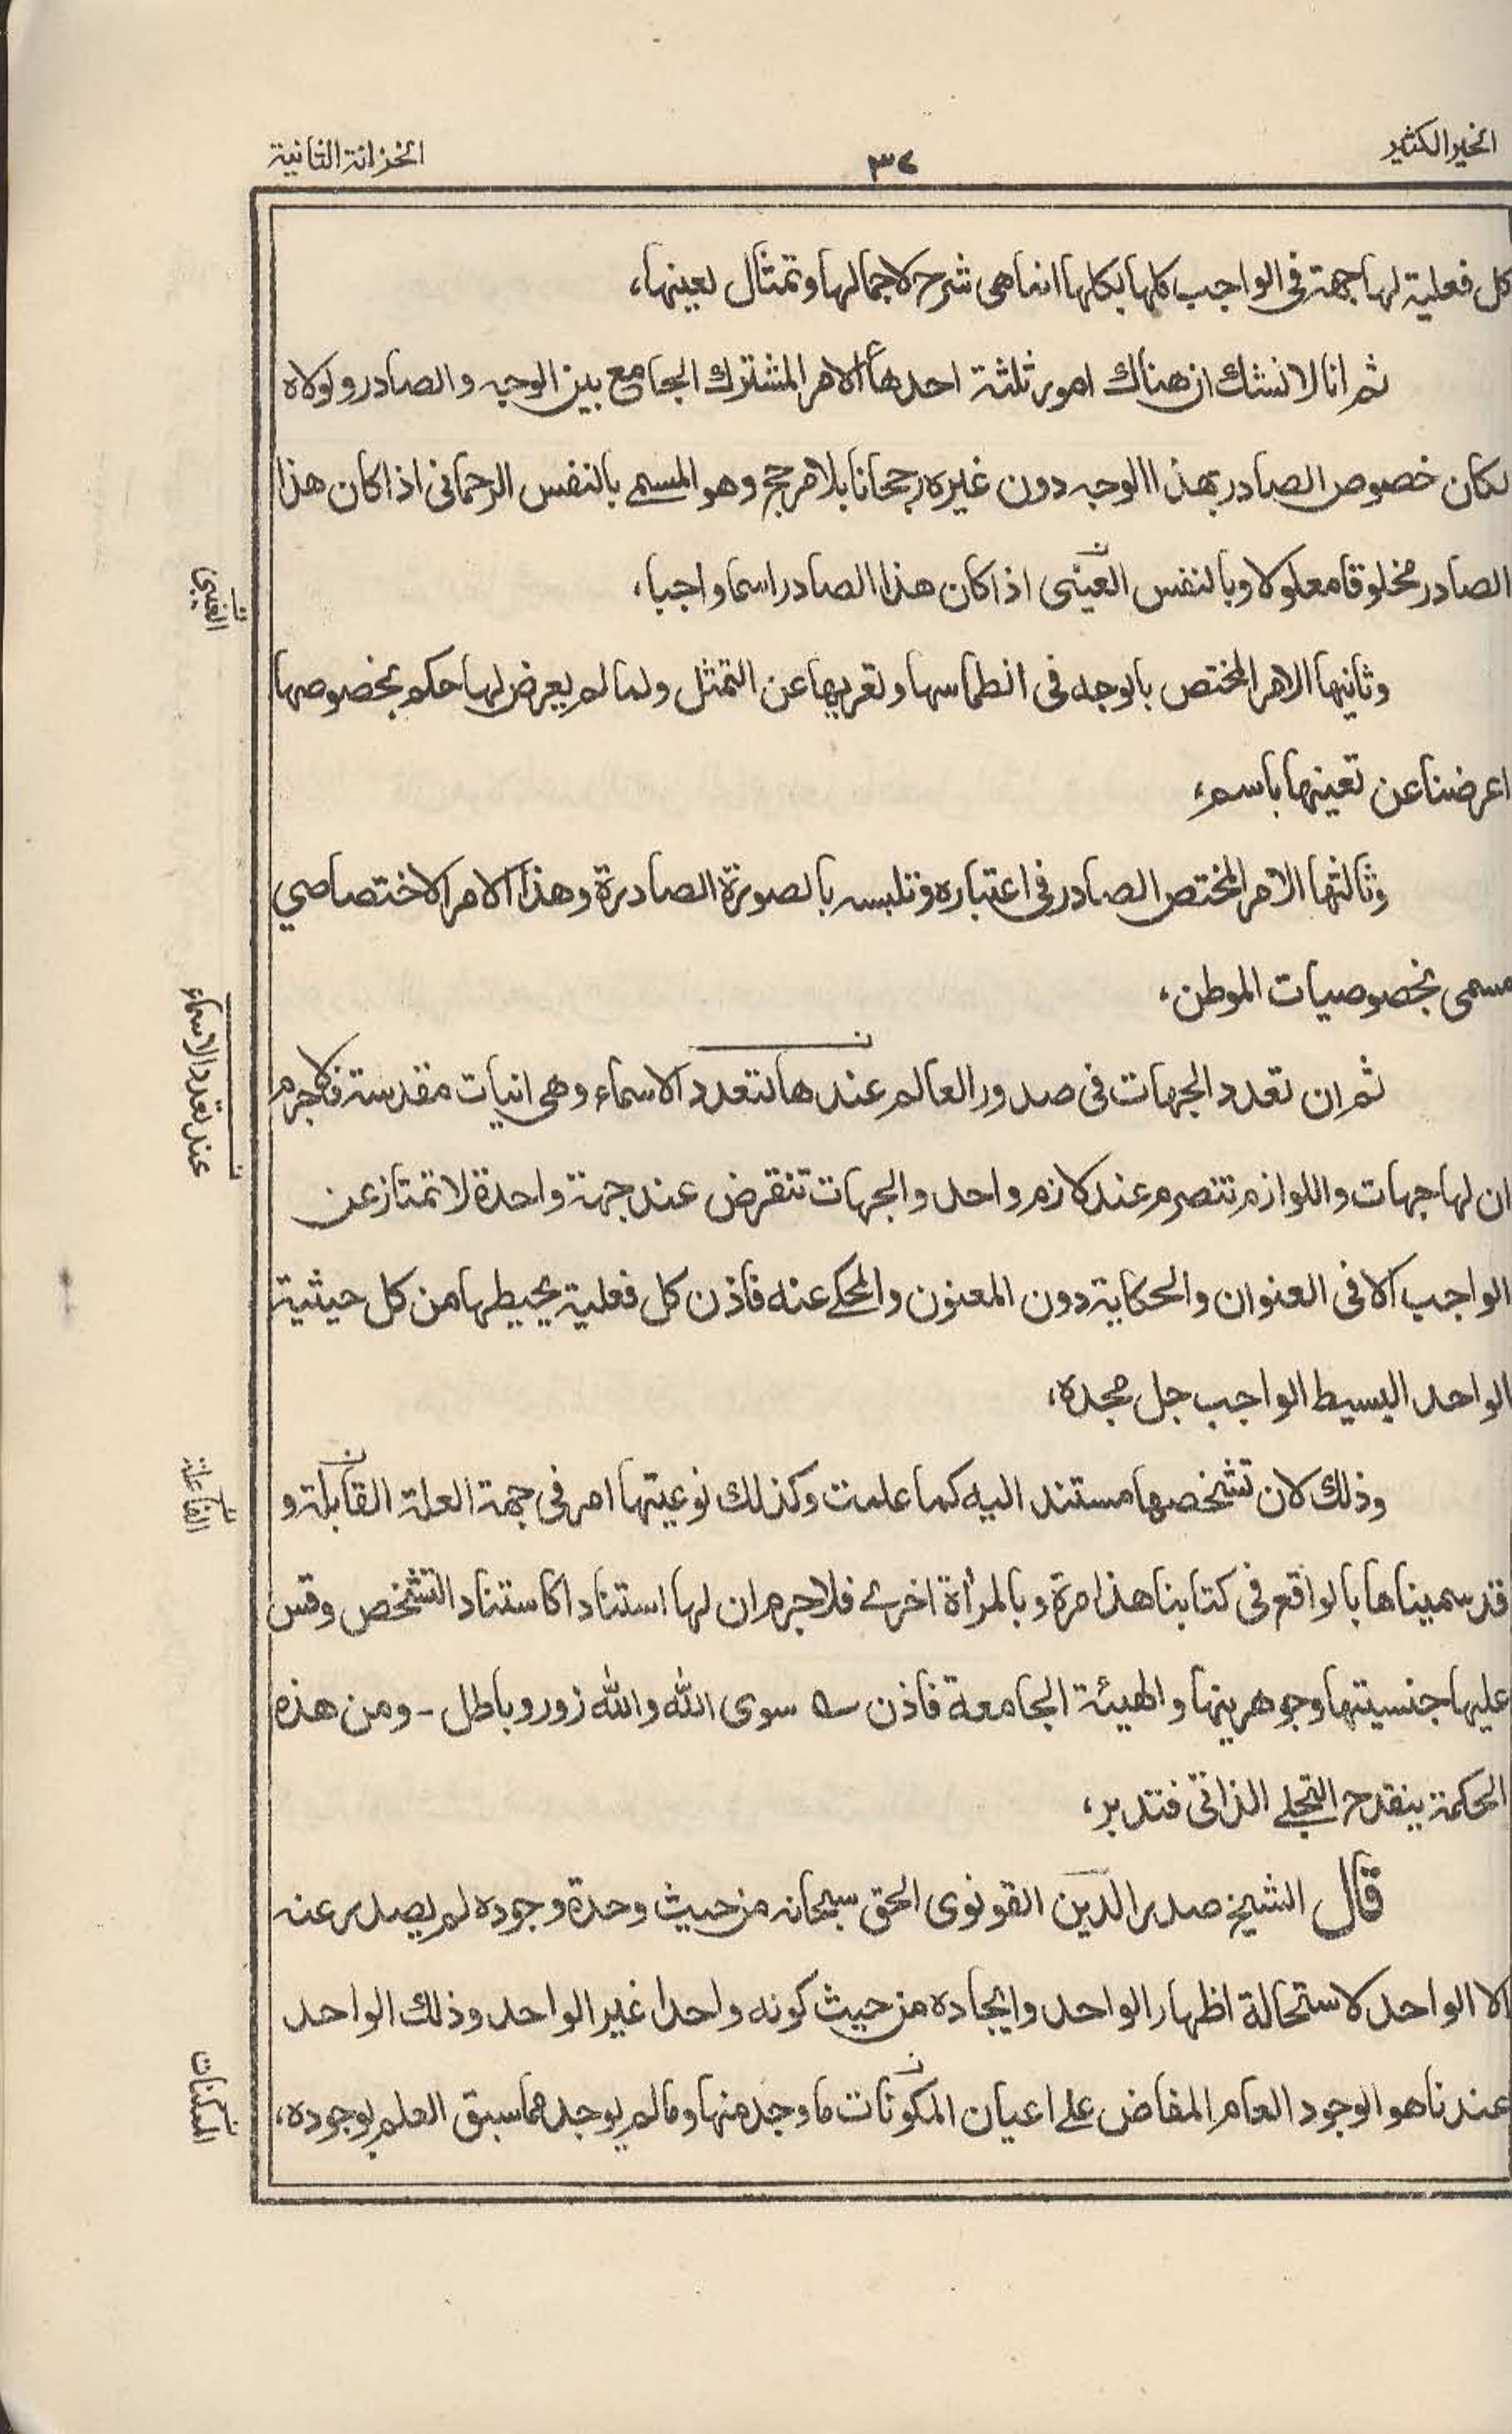 الخير الكثير
٣٧
الخزانة الثانية
كل فعلية لها جهة فى الواجب كلها بكلها انما هى شرح لاجمالها وتمثال لعينها،
ثم انا لا نشك ان هناك امور ثلثة احدها الامر المشترك الجامع بين الوجه والصادر ولولاه
لكان خصوص الصادر بهذا الوجه دون غيره رجحانا بلا مرجح وهو المسمى بالنفس الرحمانى اذا كان هذا
الصادر مخلوقا معلولا وبالنفس العينى اذا كان هذا الصادر اسما واجبا،
وثانيها الامر المختص بالوجه فى انطماسها وتعريها عن التمثل ولما لم يعرض لها حكم بخصوصها
اعرضنا عن تعينها باسم،
وثالثها الامر المختص الصادر فى اعتباره وتلبسه بالصورة الصادرة وهذا الامر الاختصاصي
مسمى بخصوصيات الموطن،
ثم ان تعدد الجهات فى صدور العالم عندها لتعدد الاسماء وهى انيات مقدسة فلا جرم
ان لها جهات واللوازم تنصرم عند لازم واحد والجهات تنقرض عند جهة واحدة لا تمتاز عن
الواجب الا فى العنوان والحكاية دون المعنون والمحكى عنه فاذن كل فعلية يحيط بها من كل حيثية
الواحد البسيط الواجب جل مجده،
وذلك لان تشخصها مستند اليه كما علمت وكذلك نوعيتها امر فى جهة العلة القابلة و
قد سميناها بالواقع فى كتابنا هذا مرة وبالمرأة اخرى فلا جرم ان لها استنادا كاستناد التشخص وقس
عليها جنسيتها وجوهريتها والهيئة الجامعة فاذن ؎ سوى الله والله زور وباطل - ومن هذه
الحكمة ينقدح التجلى الذاتى فتدبر،
قال الشيخ صدر الدين القونوى الحق سبحانه من حيث وحدة وجوده لم يصدر عنه
الا الواحد لاستحالة اظهار الواحد وايجاده من حيث كونه واحدا غير الواحد وذلك الواحد
عندنا هو الوجود العام المفاض على اعيان المكونات ما وجد منها وما لم يوجد مما سبق العلم بوجوده،
الغيبى
عند تعدد الاسماء
الفاعلة
الممكنات